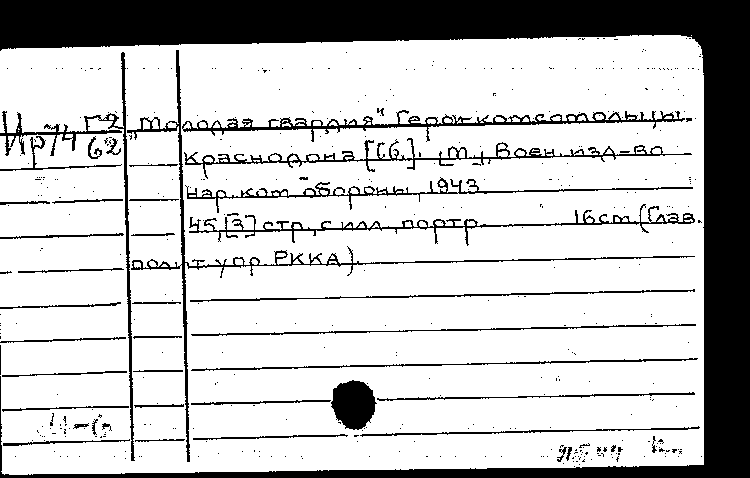 Ир74 Г2/62
„Молодая гвардия" Герои-комсомольцы
Краснодона [Сб.]. [М.], Воен. изд-во
нар. ком. обороны, 1943.
45,[3] стр., с илл., портр. 16см. (Глав.
полит. упр. РККА).
М-б